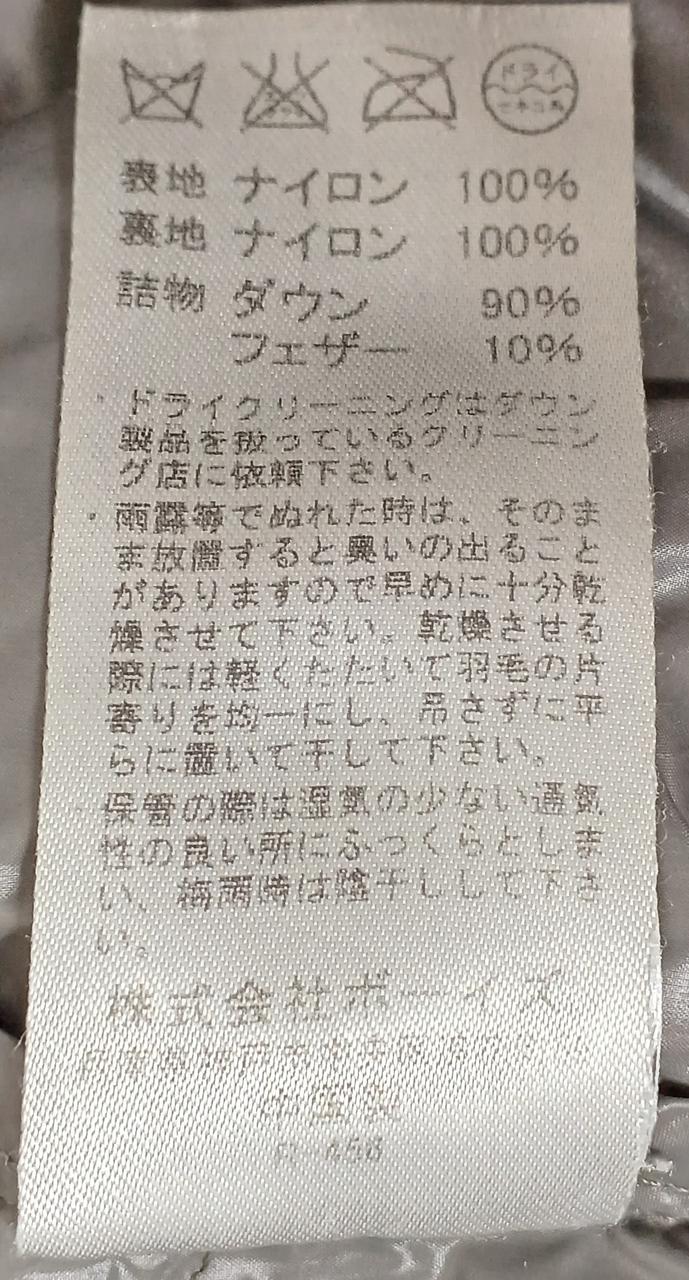 ドライ
表地 ナイロン 100%
裏地 ナイロン 100%
詰物 ダウン 90%
フェザー 10%
・ドライクリーニングはダウン
製品を扱っているクリーニン
グ店に依頼下さい。
・雨露等でぬれた時は、そのま
ま放置すると臭いの出ること
がありますので早めに十分乾
燥させて下さい。乾燥させる
際には軽くたたいて羽毛の片
寄りを均一にし、吊さずに平
らに置いて干して下さい。
保管の際は湿気の少ない通気
性の良い所にふっくらとしま
い、梅雨時は陰干しして下さ
い。
株式会社ボーイズ
兵庫県神戸市中央区
中国製